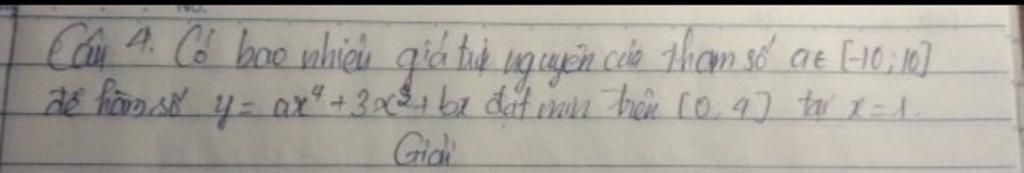 Câu 4. Có bao nhiêu giá trị nguyên của tham số a ∈ [-10; 10]
để hàm số y = ax⁴ + 3x² + bx đạt min trên [0; 4] tại x = 1.
Giải